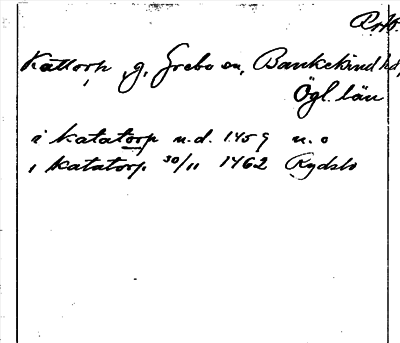 Kattorp, g, Grebo sn, Bankekind hd,
Ögl. län
i katatorp n.d. 1459 n. o
i Katatorp 30/11 1462 Rydslo